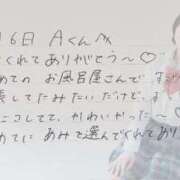 6日 Aくん
くれてありがとう〜♡
めての お風呂屋さんで
張してたみたいだけど、
こにこしてて、かわいかった〜♡
めてに あみで選んでくれてあり